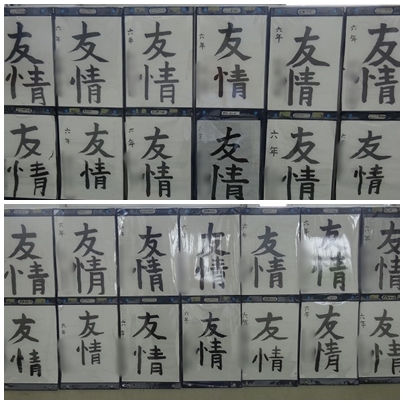 友情
友情
六年
友情
六年
友情
六年
友情
六年
友情
六年
友情
友情
六年
友情
六年
友情
友情
六年
友情
六年
友情
友情
六年
友情
友情
友情
六年
友情
六年
友情
友情
友情
六年
友情
友情
六年
友情
六年
友情
六年
友情